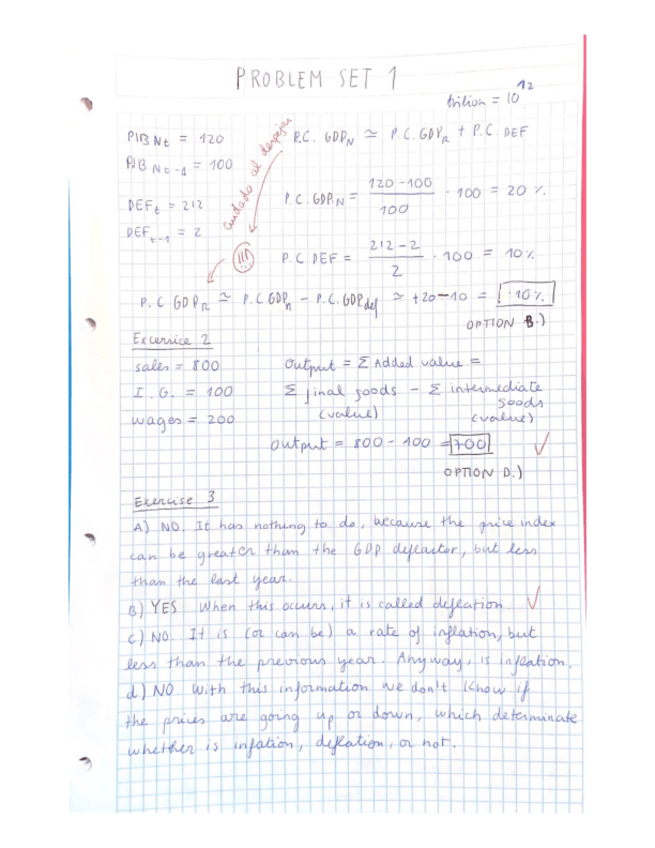 PROBLEM SET 1
trilion = 10^12
PIB Nt = 120
P.C. GDP_N ≃ P.C. GDP_R + P.C. DEF
PIB Nt-1 = 100
cuidado al despejar
P.C. GDP_N = 120-100 / 100 · 100 = 20 %
DEF_t = 2'2
DEF_t-1 = 2
!!!
P.C DEF = 2'2 - 2 / 2 · 100 = 10 %
P.C GDP_R ≃ P.C GDP_n - P.C. GDP_def ≃ +20-10 = 10 %
OPTION B.)
Excersice 2
sales = 800
Output = Σ Added value =
I. G. = 100
Σ final goods - Σ intermediate goods
(value) (value)
wages = 200
Output = 800 - 100 = 700 ✓
OPTION D.)
Exercise 3
A) NO. It has nothing to do, because the price index
can be greater than the GDP deflactor, but less
than the last year.
B) YES. When this occurs, it is called deflation. ✓
c) NO. It is (or can be) a rate of inflation, but
less than the previous year. Anyway, is inflation.
d) NO. With this information we don't know if
the prices are going up or down, which determinate
whether is inflation, deflation, or not.